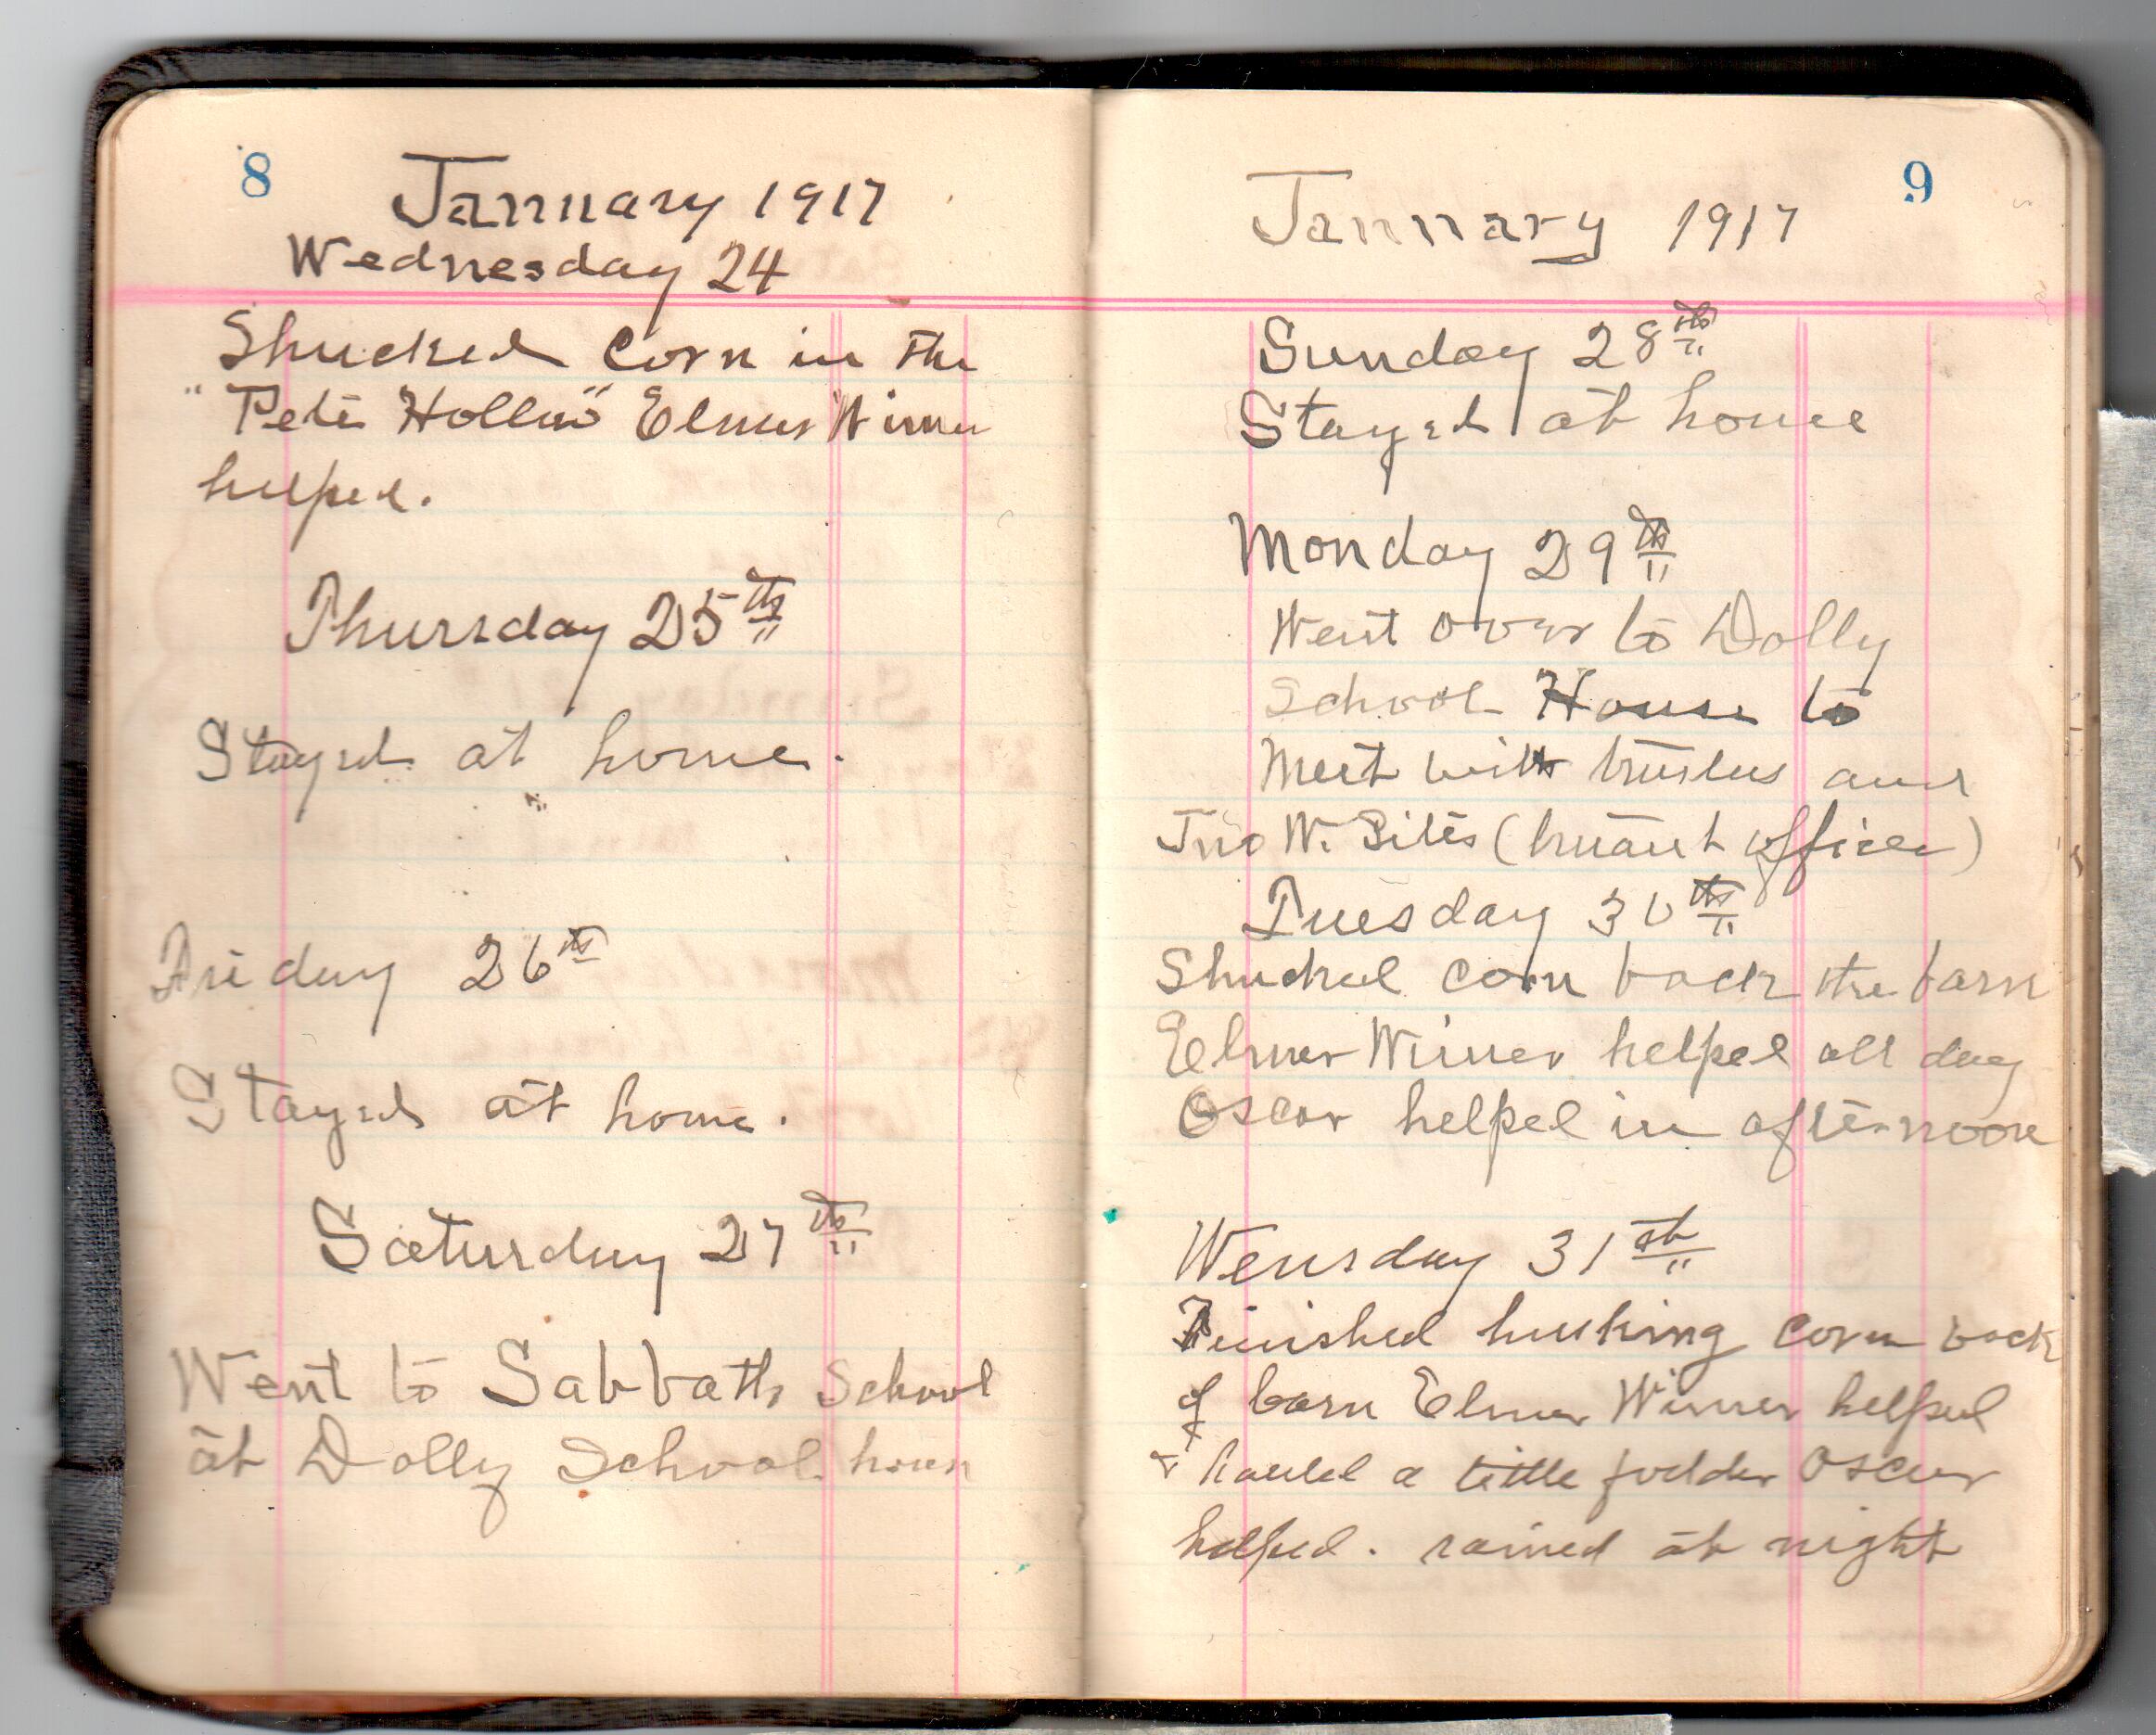 8
January 1917
Wednesday 24
Shucked Corn in the
"Pete Hollow" Elmer Wimer
helped.
Thursday 25th
Stayed at home.
Friday 26th
Stayed at home.
Saturday 27th
Went to Sabbath School
at Dolly School house
9
January 1917
Sunday 28th
Stayed at home
Monday 29th
Went over to Dolly
School House to
Meet with trustees and
Jno W. Sites (truant officer)
Tuesday 30th
Shucked corn back the barn
Elmer Wimer helped all day
Oscar helped in afternoon
Wensday 31st
Finished husking corn back
of barn Elmer Wimer helped
& hauled a little fodder Oscar
helped. rained at night